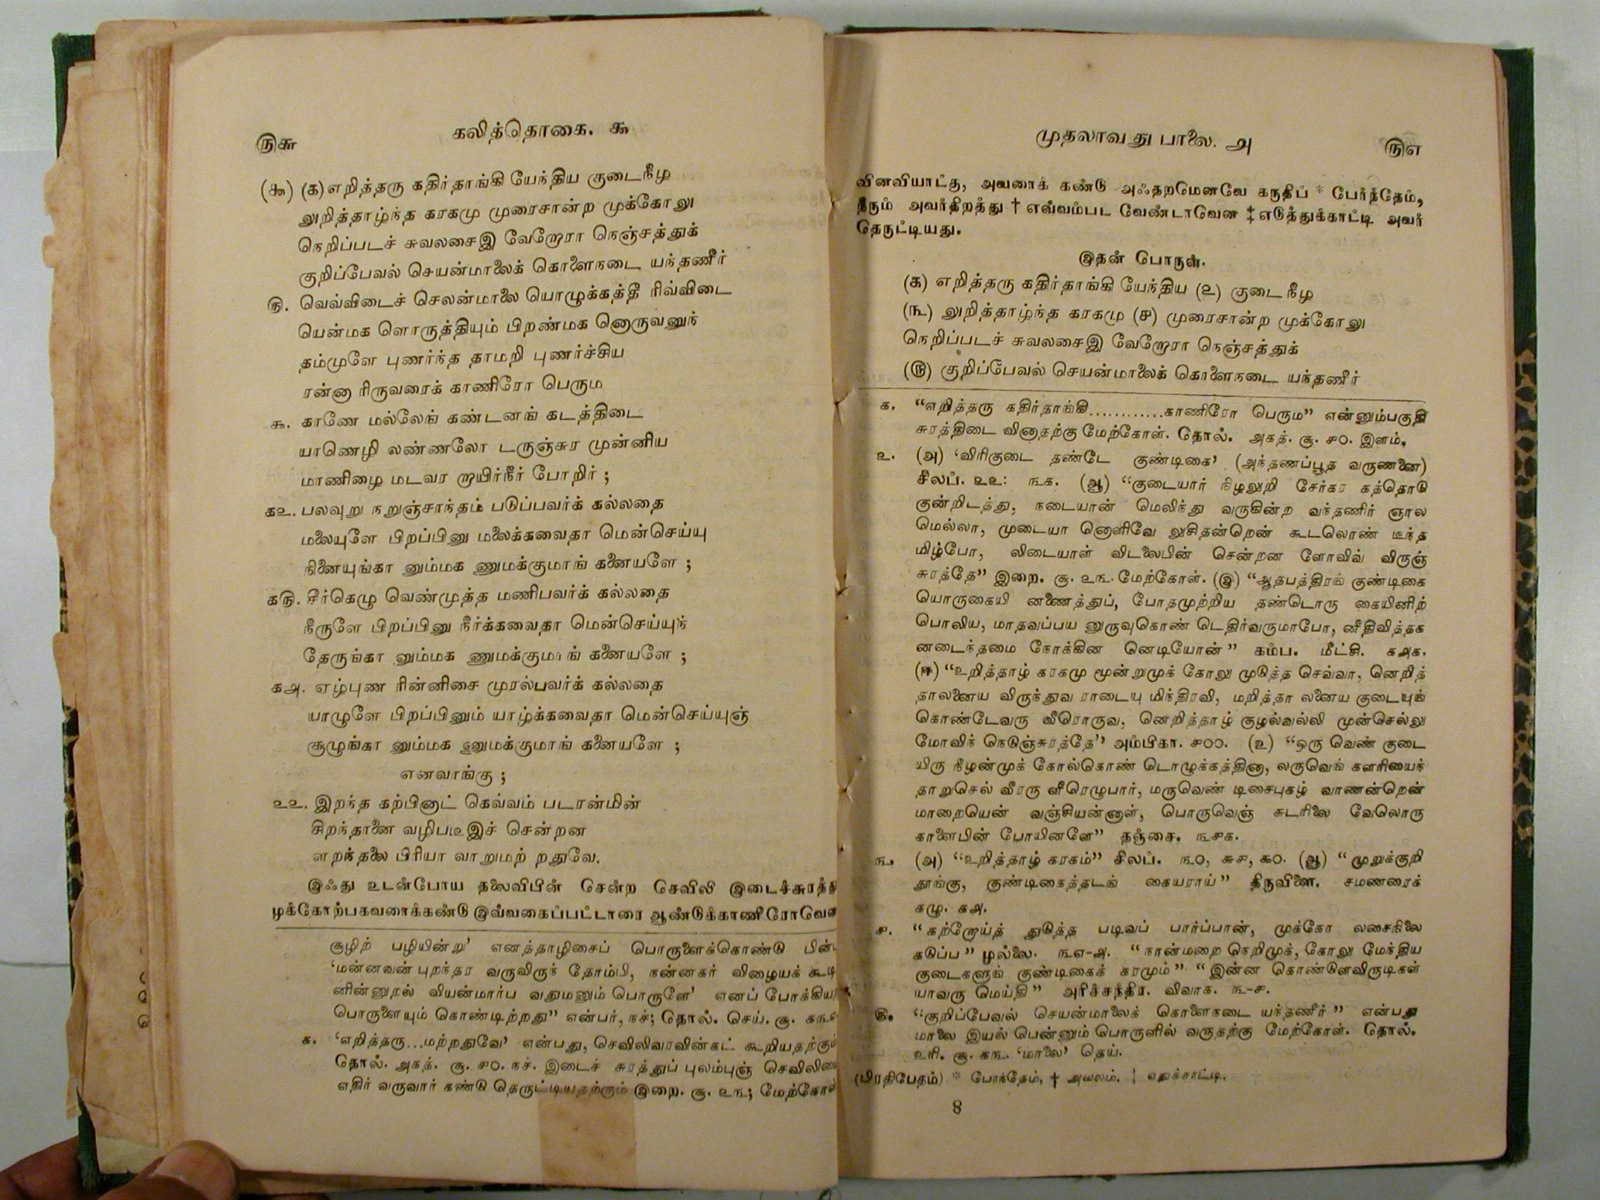 ௫௬
கலித்தொகை. ௯
(௯) (௧) எறித்தரு கதிர்தாங்கி யேந்திய குடைநீழ
லுறித்தாழ்ந்த கரகமு முரைசான்ற முக்கோலு
நெறிப்படச் சுவலசைஇ வேறோரா நெஞ்சத்துக்
குறிப்பேவல் செயன்மாலைக் கொளைநடை யந்தணீர்
௫. வெவ்விடைச் செலன்மாலை யொழுக்கத்தீ ரிவ்விடை
யென்மக ளொருத்தியும் பிறண்மக னொருவனுந்
தம்முளே புணர்ந்த தாமறி புணர்ச்சிய
ரன்னா ரிருவரைக் காணிரோ பெரும
௯. காணே மல்லேங் கண்டனங் கடத்திடை
யாணெழி லண்ணலோ டருஞ்சுர முன்னிய
மாணிழை மடவர றாயிர்நீர் போறிர் ;
௧௨. பலவுறு நறுஞ்சாந்தம் படுப்பவர்க் கல்லதை
மலையுளே பிறப்பினு மலைக்கவைதா மென்செய்யு
நினையுங்கா னும்மக ணுமக்குமாங் கனையளே ;
௧௫. சீர்கெழு வெண்முத்த மணிபவர்க் கல்லதை
நீருளே பிறப்பினு நீர்க்கவைதா மென்செய்யுந்
தேருங்கா னும்மக ணுமக்குமாங் கனையளே ;
௧௮. ஏழ்புண ரின்னிசை முரல்பவர்க் கல்லதை
யாழுளே பிறப்பினும் யாழ்க்கவைதா மென்செய்யுஞ்
சூழுங்கா னும்மக ணுமக்குமாங் கனையளே ;
எனவாங்கு ;
௨௨. இறந்த கற்பினாட் கெவ்வம் படரன்மின்
சிறந்தானை வழிபடீஇச் சென்றன
ளறந்தலை பிரியா வாறுமற் றதுவே.
இஃது உடன்போய தலைவிபின் சென்ற செவிலி இடைச்சுரத்து
முக்கோற்பகவரைக்கண்டு இவ்வகைப்பட்டாரை ஆண்டுக்காணீரோவென
சூழிற் பழியின்று' எனத்தாழிசைப் பொருளைக்கொண்டு
'மன்னவன் புறந்தர வருவிருந் தோம்பி, நன்னகர் விழையக் கூடி
னின்னுறல் வியன்மார்ப வதுமனும் பொருளே' எனப் போக்கிய
பொருளையும் கொண்டிற்றது” என்பர், நச்; தொல். செய். சூ.
௧. 'எறித்தரு...மற்றதுவே' என்பது, செவிலிவரவின்கட் கூறியதற்கும்
தொல். அகத். சூ. ௪௦. நச். இடைச் சுரத்துப் புலம்புஞ் செவிலியை
எதிர் வருவார் கண்டு தெருட்டியதற்கும் இறை. சூ. ௨௩; மேற்கோள்
முதலாவது பாலை. ௮
௫௭
வினவியாட்கு, அவரைக் கண்டு அஃதறமெனவே கருதிப் * பேர்ந்தேம்,
நீரும் அவர்திறத்து † எவ்வம்பட வேண்டாவென ‡ எடுத்துக்காட்டி அவர்
தெருட்டியது.
இதன் பொருள்.
(௧) எறித்தரு கதிர்தாங்கி யேந்திய (௨) குடைநீழ
(௩) லுறித்தாழ்ந்த கரகமு (௪) முரைசான்ற முக்கோலு
நெறிப்படச் சுவலசைஇ வேறோரா நெஞ்சத்துக்
(௫) குறிப்பேவல் செயன்மாலைக் கொளைநடை யந்தணீர்
௧. “எறித்தரு கதிர்தாங்கி............காணிரோ பெரும” என்னும்பகுதி
சுரத்திடை வினாதற்கு மேற்கோள். தொல். அகத். சூ. ௪௦. இளம்.
௨. (அ) 'விரிகுடை தண்டே குண்டிகை' (அந்தணப்பூத வருணனை)
சிலப். ௨௨: ௩௧. (ஆ) “குடையார் நிழலுறி சேர்கர கத்தொடு
குன்றிடத்து, நடையான் மெலிந்து வருகின்ற வந்தணிர் ஞால
மெல்லா, முடையா னொளிவே லுசிதன்றென் கூடலொண் டீந்த
மிழ்போ, லிடையாள் விடலைபின் சென்றன ளோவிவ் விருஞ்
சுரத்தே” இறை. சூ. ௨௩. மேற்கோள். (இ) “ஆதபத்திரங் குண்டிகை
யொருகையி னணைத்துப், போதமுற்றிய தண்டொரு கையினிற்
பொலிய, மாதவப்பய னுருவுகொண் டெதிர்வருமாபோ, னீதிவித்தக
னடைந்தமை நோக்கின னெடியோன்” கம்ப. மீட்சி. ௧௮௧.
(ஈ) “உறித்தாழ் கரகமு மூன்றுமுக் கோலு முடுத்த செவ்வா, னெறித்
தாலனைய விருந்துவ ராடையு மிந்திரவி, மறித்தா லனைய குடையுங்
கொண்டேவரு வீரொருவ, னெறித்தாழ் குழல்வல்லி முன்செல்லு
மோவிந் நெடுஞ்சுரத்தே” அம்பிகா. ௪௦௦. (உ) “ஒரு வெண் குடை
யிரு நீழன்முக் கோல்கொண் டொழுக்கத்தினா, லருவெங் களரியைந்
தாறுசெல் வீரரு ளீரெழுபார், மருவெண் டிசைபுகழ் வாணன்றென்
மாறையென் வஞ்சியன்னாள், பொருவெஞ் சுடரிலை வேலொரு
காளைபின் போயினளே” தஞ்சை. ௩௪௧.
௩. (அ) “உறித்தாழ் கரகம்” சிலப். ௩௦, ௬௪, ௯௦. (ஆ) “முறுக்குறி
தூங்கு, குண்டிகைத்தடங் கையராய்” திருவிளை. சமணரைக்
கழு. ௧௮.
௪. “கற்றோய்த் துடுத்த படிவப் பார்ப்பான், முக்கோ லசைநிலை
கடுப்ப” முல்லை. ௩௭-௮. “நான்மறை நெறிமுக், கோலு மேந்திய
குடைகளுங் குண்டிகைக் கரமும்” “இன்ன கொண்டுளவிருடிகள்
யாவரு மெய்தி” அரிச்சந்திர. விவாக. ௩-௪.
௫. “குறிப்பேவல் செயன்மாலைக் கொளைநடை யந்தணீர்” என்பது
மாலை இயல் பென்னும் பொருளில் வருதற்கு மேற்கோள். தொல்.
உரி. சூ. ௧௩. 'மாலை' தெய்.
(பிரதிபேதம்) * போந்தேம், † அவலம்.
8